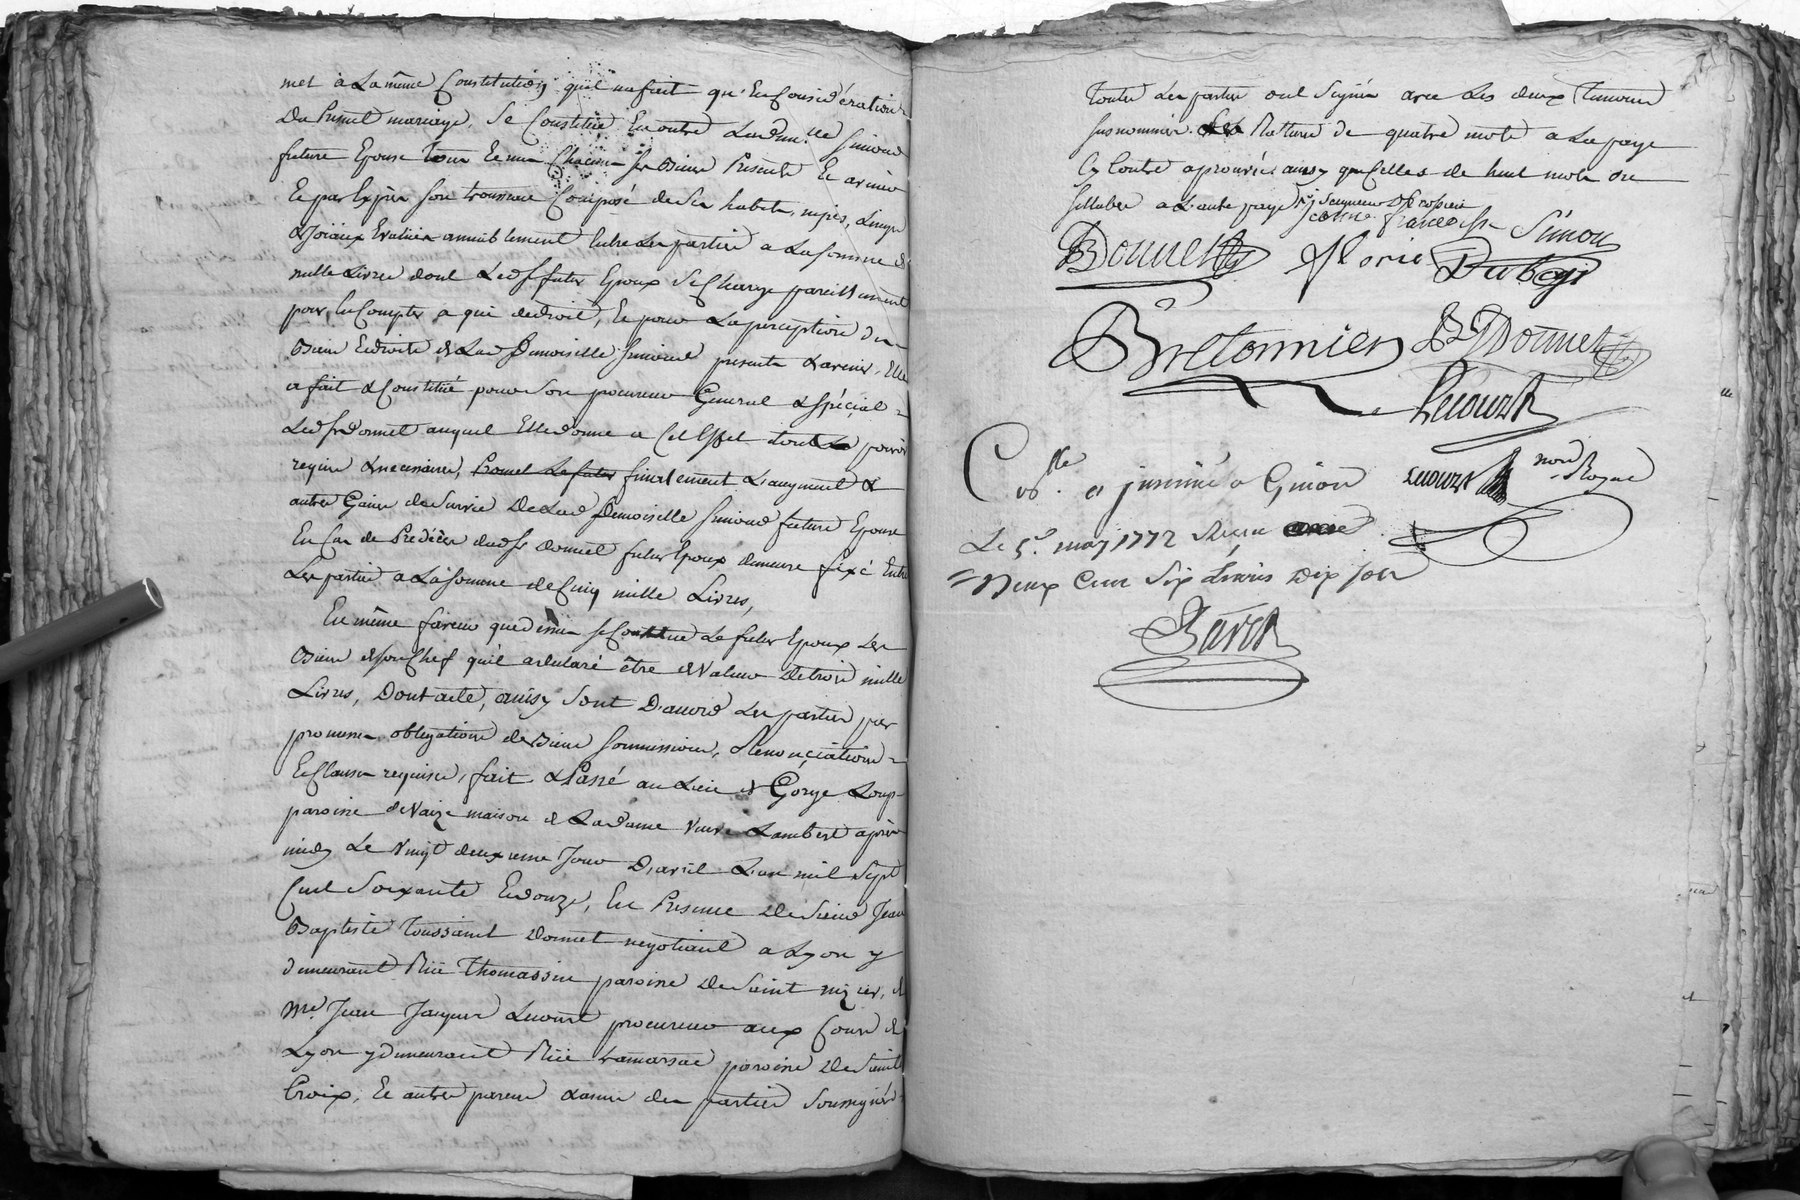 met à la même Constitution qu'il ne fait qu'En Considération
Du Present mariage, Se Constitue En outre lad. dm.lle Simond
future Epouse tous Et un Chacun ses Biens Presents Et avenir
Et par Exprès son trousseau Composé de Ses habits, nipes, Linge
& Joiaux Evalués amiablement Entre Les parties a La somme de
mille Livres dont Led. sr. futur Epoux Se Charge pareillement
pour En Compter a qui de droit, Et pour La perception des
Biens Et droits de Lad. Demoiselle Simond presents & avenir, Elle
a fait & Constitué pour Son procureur General & Spécial
Led. sr. Donnet auquel Elle donne a Cet Effet tout pouvoir
requis & necessaire, Promet Le futur finalement L'augment &
autres Gains de Survie De Lad. Demoiselle Simond future Epouse
En Cas de Predécès dud. sr. Donnet futur Epoux demeure fixé Entre
Les parties a La Somme de Cinq mille Livres,
En même faveur que dessus se Constitue Le futur Epoux Les
Biens de son Chef qu'il a declaré être de Valeur de trois mille
Livres, Dont acte, ainsy Sont D'accord Les parties par
promesses obligations de Biens soumissions, Renonciations
Et Clauses requises, fait & Passé au Lieu de Gorge Loup
paroisse de Vaize maison de La Dame Veuve Lambert après
midy Le Vingt deuxieme Jour D'avril L'an mil Sept
Cent Soixante Et douze, En Presence De Sieur Jean
Baptiste Toussaint Donnet negotiant a Lyon y
demeurant Rüe Thomassin paroisse De Saint nizier, &
Me. Jean Jacques Lecourt procureur aux Cours de
Lyon y demeurant Rüe tramassac paroisse De Sainte
Croix, Et autres parens & amis des parties Soussignés
Toutes Les parties ont Signé avec Les deux Temoins
susnommés. Rature de quatre mots a La page
Cy Contre aprouvée ainsy que Celles de huit mots ou
sillabes a L'autre page
jeanne francoise Simon
Donnet Florie Dubost
Bretonnier B J Donnet
Lecourt
C olle et insinué a Lion Lecourt nore Royal
Le 5e. may 1772 Recu
Deux Cent Six Livres Dix Sols
Baroud